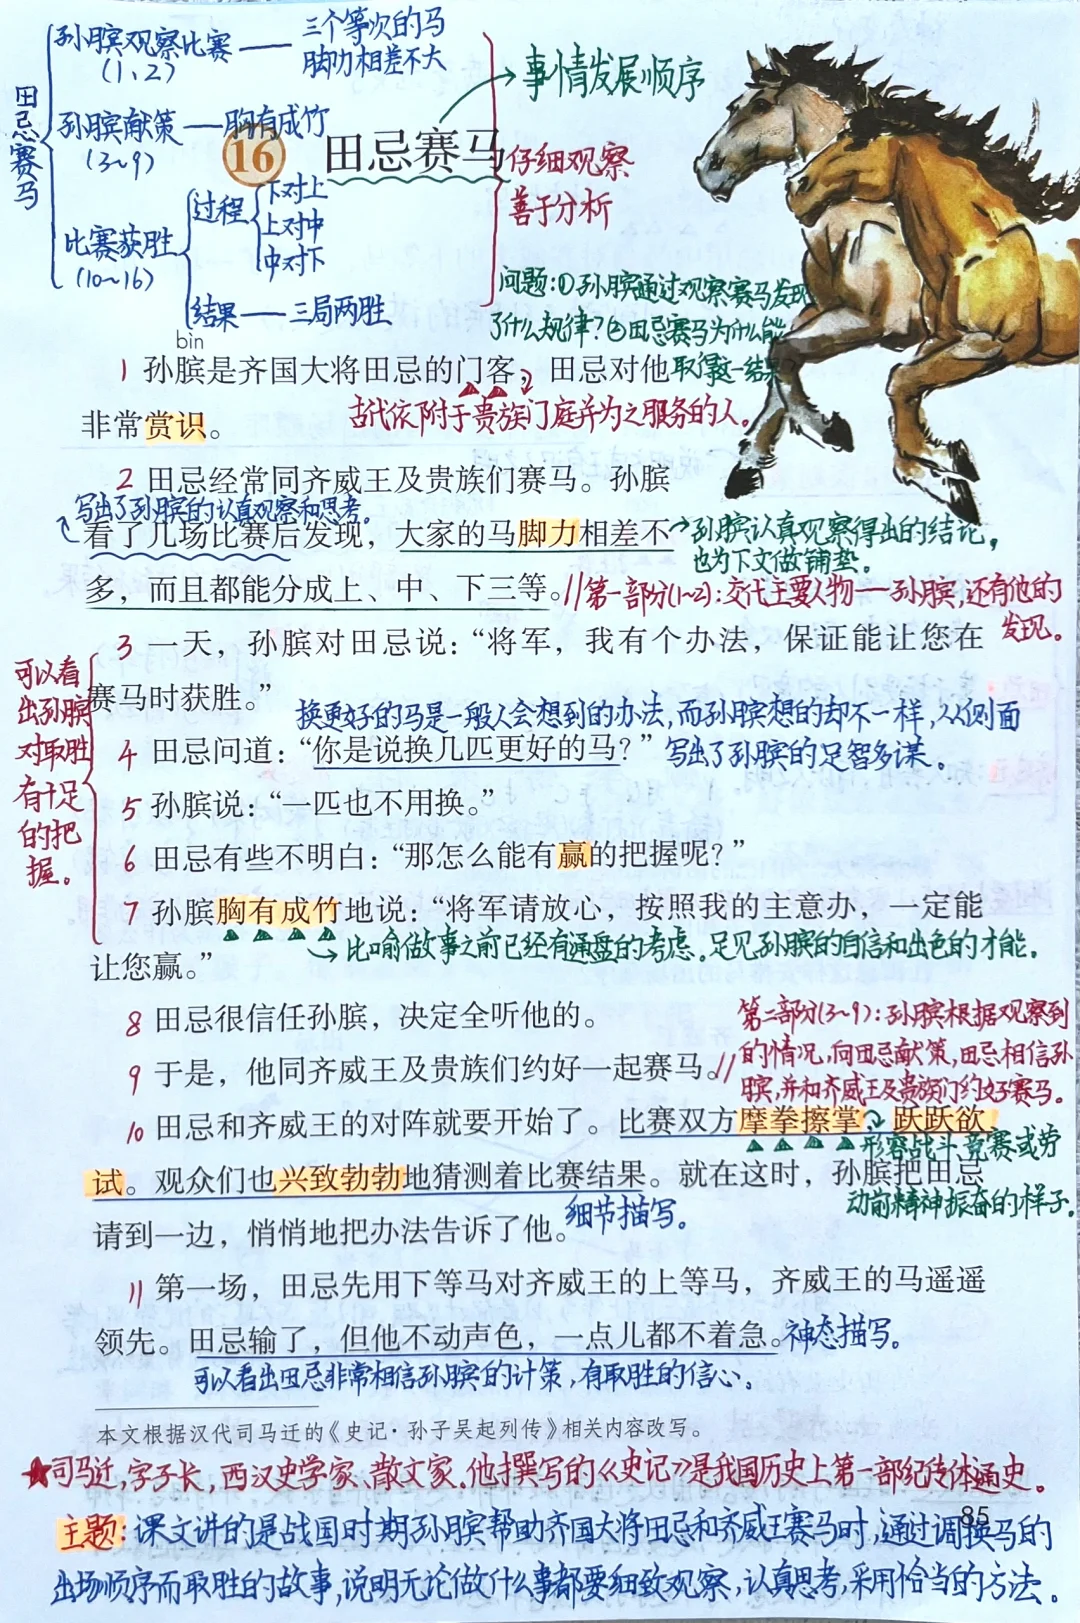 田忌赛马
孙膑观察比赛——三个等次的马
(1、2) 脚力相差不大
孙膑献策——胸有成竹
(3~9)
比赛获胜
(10~16)
过程
下对上
上对中
中对下
结果——三局两胜
事情发展顺序
16 田忌赛马
仔细观察
善于分析
问题:①孙膑通过观察赛马发现
了什么规律?②田忌赛马为什么能
取得这一结果
bìn
1 孙膑是齐国大将田忌的门客，田忌对他
古代依附于贵族门庭并为之服务的人。
非常赏识。
2 田忌经常同齐威王及贵族们赛马。孙膑
写出了孙膑的认真观察和思考。
看了几场比赛后发现，大家的马脚力相差不
孙膑认真观察得出的结论,
也为下文做铺垫。
多，而且都能分成上、中、下三等。
//第一部分(1~2):交代主要人物——孙膑,还有他的
发现。
3 一天，孙膑对田忌说：“将军，我有个办法，保证能让您在
赛马时获胜。”
可以看
出孙膑
对取胜
有十足
的把
握。
换更好的马是一般人会想到的办法,而孙膑想的却不一样,从侧面
4 田忌问道：“你是说换几匹更好的马？”
写出了孙膑的足智多谋。
5 孙膑说：“一匹也不用换。”
6 田忌有些不明白：“那怎么能有赢的把握呢？”
7 孙膑胸有成竹地说：“将军请放心，按照我的主意办，一定能
比喻做事之前已经有通盘的考虑。足见孙膑的自信和出色的才能。
让您赢。”
8 田忌很信任孙膑，决定全听他的。
9 于是，他同齐威王及贵族们约好一起赛马。
//第二部分(3~9):孙膑根据观察到
的情况,向田忌献策,田忌相信孙
膑,并和齐威王及贵族们约好赛马。
10 田忌和齐威王的对阵就要开始了。比赛双方摩拳擦掌，跃跃欲
形容战斗、竞赛或劳
动前精神振奋的样子。
试。观众们也兴致勃勃地猜测着比赛结果。就在这时，孙膑把田忌
细节描写。
请到一边，悄悄地把办法告诉了他。
11 第一场，田忌先用下等马对齐威王的上等马，齐威王的马遥遥
领先。田忌输了，但他不动声色，一点儿都不着急。
神态描写。
可以看出田忌非常相信孙膑的计策,有取胜的信心。
本文根据汉代司马迁的《史记·孙子吴起列传》相关内容改写。
★司马迁,字子长,西汉史学家、散文家.他撰写的《史记》是我国历史上第一部纪传体通史。
85
主题:课文讲的是战国时期孙膑帮助齐国大将田忌和齐威王赛马时,通过调换马的
出场顺序而取胜的故事,说明无论做什么事都要细致观察,认真思考,采用恰当的方法。